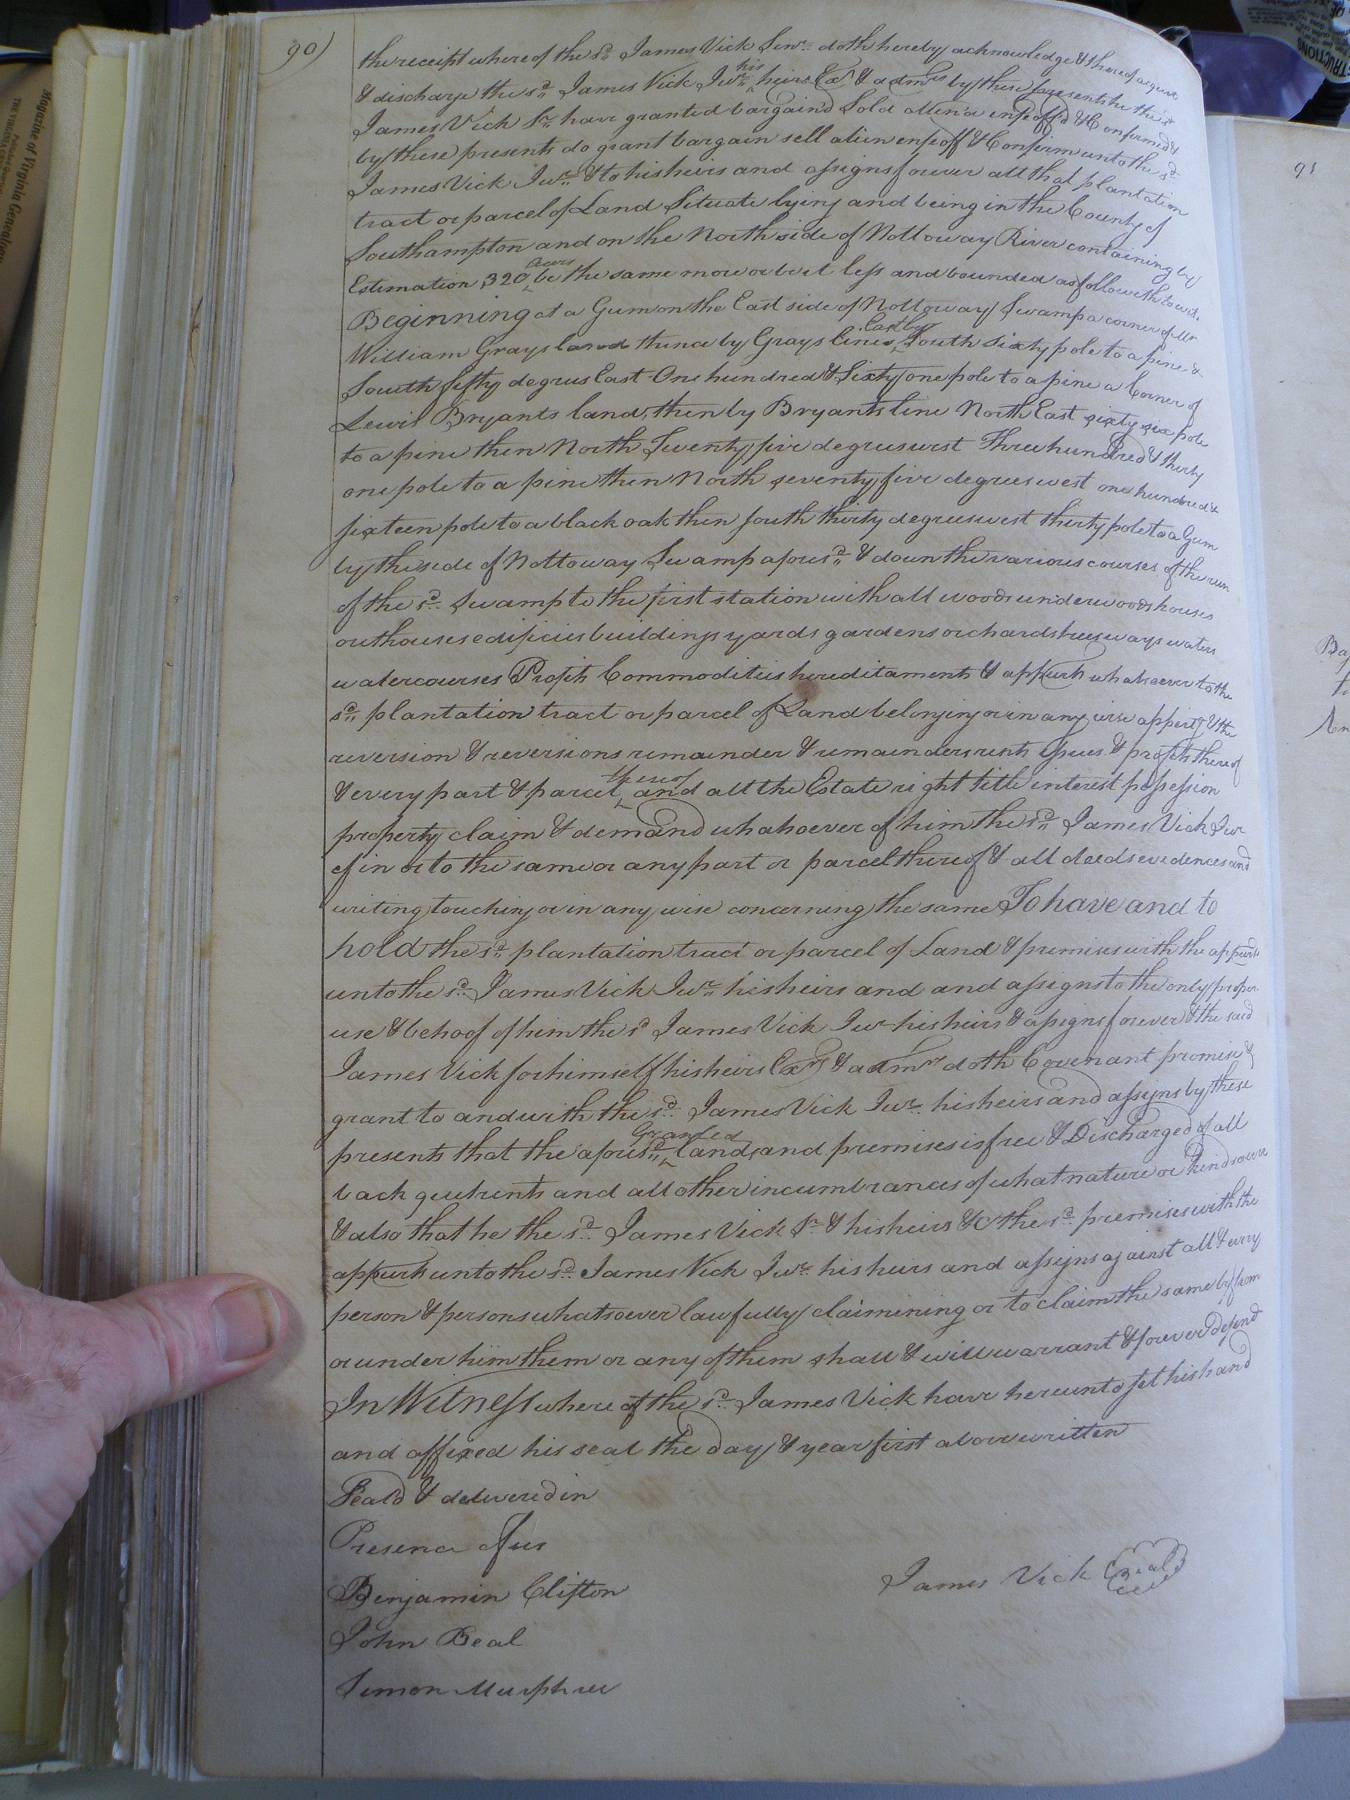 90)
the receipt whereof the sd James Vick Senr. doth hereby acknowledge & thereof acquit
& discharge the sd James Vick Junr. his heirs Exrs & admrs by these presents he the sd
James Vick Sr. have granted bargaind Sold aliend enfeoff'd & Confirmed &
by these presents do grant bargain sell alien enfeoff & Confirm unto the sd
James Vick Junr. & to his heirs and assigns forever all that plantation
tract or parcel of Land Situate lying and being in the County of
Southampton and on the North side of Nottoway River containing by
Estimation 320 acres be the same more or be it less and bounded as followeth to wit.
Beginning at a Gum on the East side of Nottoway Swamp a corner of Mr
William Grays land thence by Grays lines East by South Sixty pole to a pine &
South fifty degrees East One hundred & Sixty one pole to a pine a Corner of
Lewis Bryants land, then by Bryants line North East sixty six pole
to a pine then North Twenty five degrees west Three hundred & thirty
one pole to a pine then North seventy five degrees west one hundred &
sixteen pole to a black oak then south thirty degrees west thirty pole to a Gum
by the side of Nottoway Swamp aforesd. & down the various courses of the run
of the sd. Swamp to the first station with all woods underwoods houses
outhouses edificies buildings yards gardens orchards trees ways waters
watercourses Profits Commodities hereditaments & appurts whatsoever to the
sd. plantation tract or parcel of Land belonging or in any wise appertg & the
reversion & reversions remainder & remainders rents Issues & profits thereof
& every part & parcel thereof and all the Estate right title interest possession
property claim & demand whatsoever of him the sd. James Vick Junr
of in or to the same or any part or parcel thereof & all deeds evidences and
writing touching or in any wise concerning the same To have and to
hold the sd. plantation tract or parcel of Land & premises with the appurts
unto the sd. James Vick Junr. his heirs and and assigns to the only proper
use & behoof of him the sd James Vick Junr his heirs & assigns forever & the said
James Vick for himself his heirs Exrs & admrs doth Covenant promise &
grant to and with the sd. James Vick Junr. his heirs and assigns by these
presents that the aforesd. Granted land, and premises is free & Discharged of all
back quitrents and all other incumbrances of what nature or kind soever
& also that he the sd. James Vick Sr. & his heirs &c the sd. premises with the
appurts unto the sd. James Vick Junr. his heirs and assigns against all & every
person & persons whatsoever lawfully claimining or to claim the same by from
or under him them or any of them shall & will warrant & forever defend
In Witness where of the sd. James Vick have hereunto set his hand
and affixed his seal the day & year first above written
Seald & delivered in
Presence of us
Benjamin Clifton
James Vick Seal
John Beal
Simon Murphree
91
Magazine of Virginia Genealogy